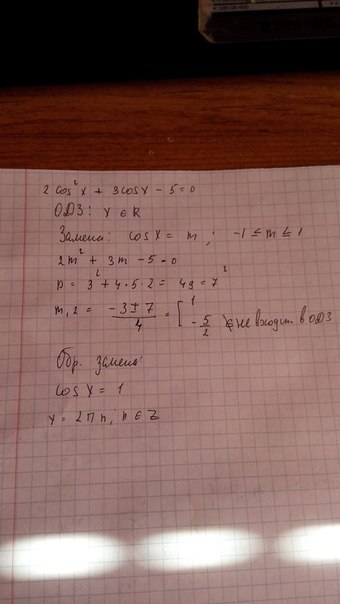 2 cos²x + 3cosx - 5 = 0
ОДЗ: x ∈ R
Замена: cosx = m ; -1 ≤ m ≤ 1
2m² + 3m - 5 = 0
D = 3² + 4·5·2 = 49 = 7²
m₁,₂ = (-3 ± 7)/4 = [ 1 ; -5/2 ∉ не входит в ОДЗ
Обр. замена:
cosx = 1
x = 2πn, n ∈ Z